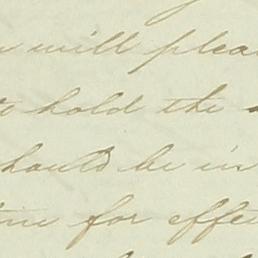 will plea
to hold the
should be in
time for effe